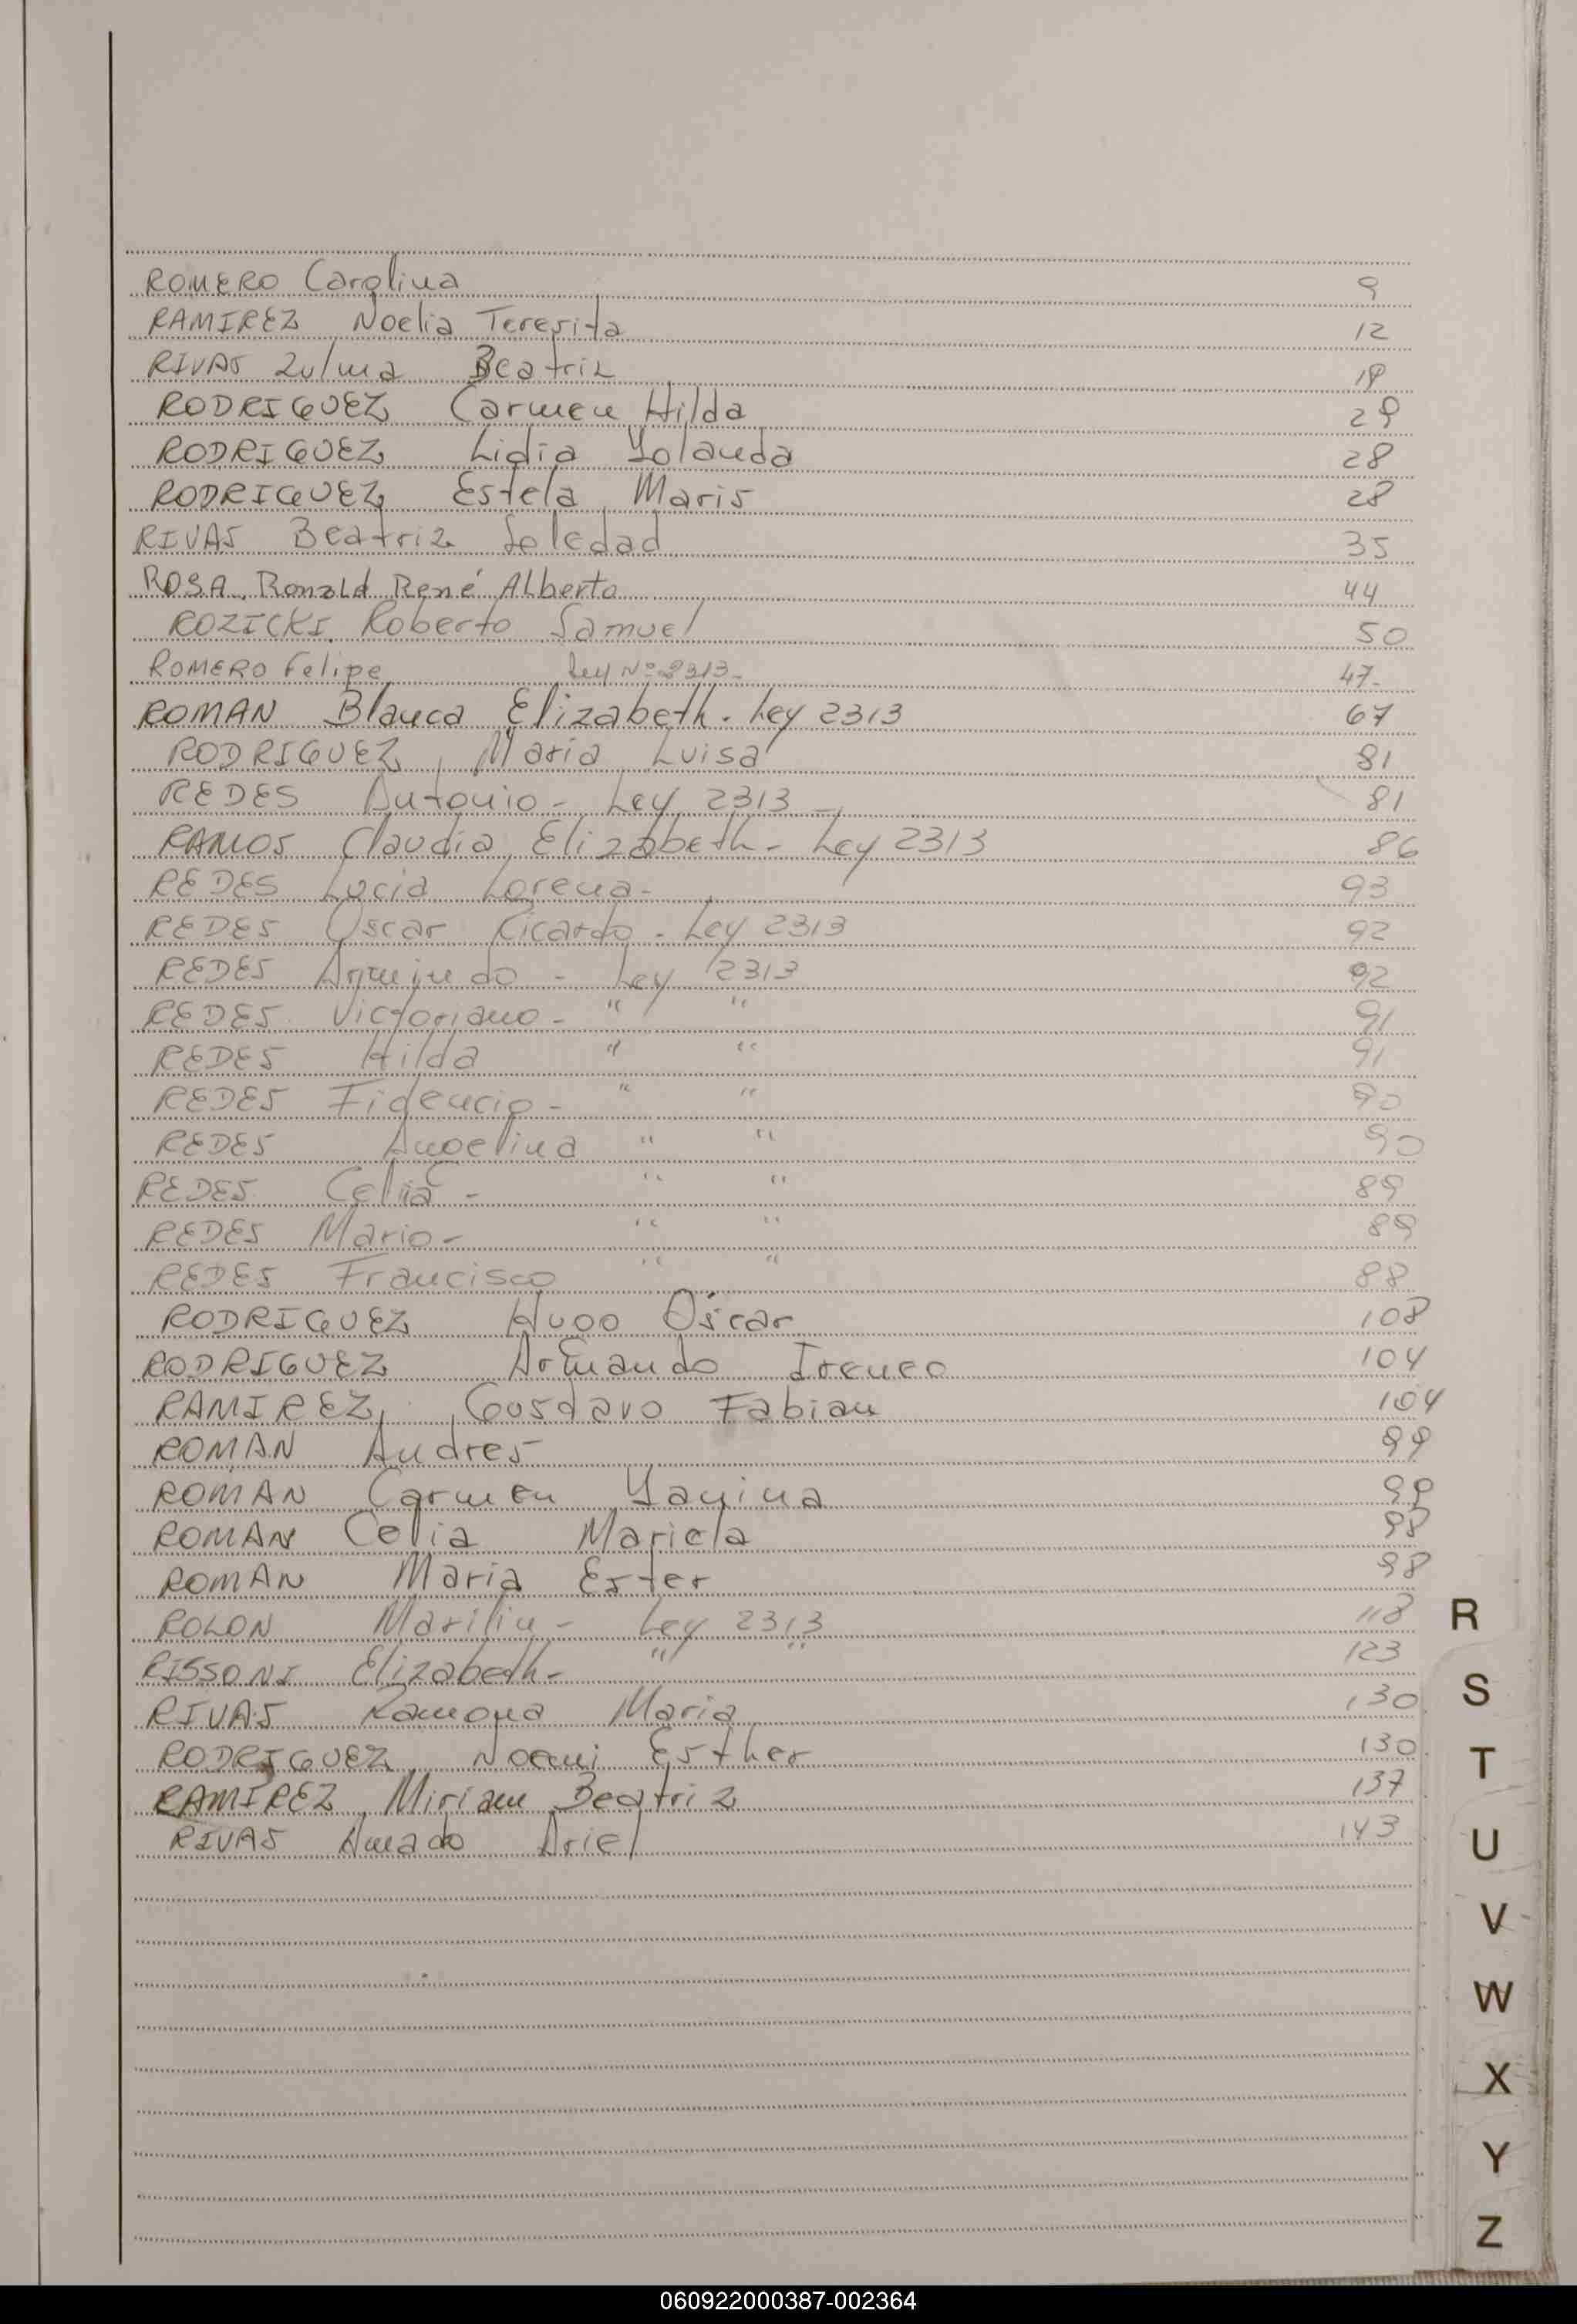 ROMERO Carolina 9
RAMIREZ Noelia Teresita 12
RIVAS Zulma Beatriz 19
RODRIGUEZ Carmen Hilda 29
RODRIGUEZ Lidia Yolanda 28
RODRIGUEZ Estela Maris 28
RIVAS Beatriz Soledad 35
ROSA, Ronald René Alberto 44
ROZICKI Roberto Samuel 50
ROMERO Felipe Ley Nº 2313- 47-
ROMAN Blanca Elizabeth - Ley 2313 67
RODRIGUEZ, Maria Luisa 81
REDES Antonio - Ley 2313 - 81
RAMOS Claudia Elizabeth - Ley 2313 86
REDES Lucia Lorena - 93
REDES Oscar Ricardo - Ley 2313 92
REDES Armindo - Ley 2313 92
REDES Victoriano - " " 91
REDES Hilda " " 91
REDES Fidencio - " " 90
REDES Angelina " " 90
REDES Celia - " " 89
REDES Mario - " " 89
REDES Francisco " " 88
RODRIGUEZ Hugo Oscar 108
RODRIGUEZ Armando Ireneo 104
RAMIREZ, Gustavo Fabian 104
ROMAN Andres 99
ROMAN Carmen Yanina 99
ROMAN Celia Mariela 98
ROMAN Maria Ester 98
ROLON Marilin - Ley 2313 118
RISSONI Elizabeth - " " 123
RIVAS Ramona Maria 130
RODRIGUEZ Noemi Esther 130
RAMIREZ, Miriam Beatriz 137
RIVAS Amado Ariel 143
R
S
T
U
V
W
X
Y
Z
060922000387-002364